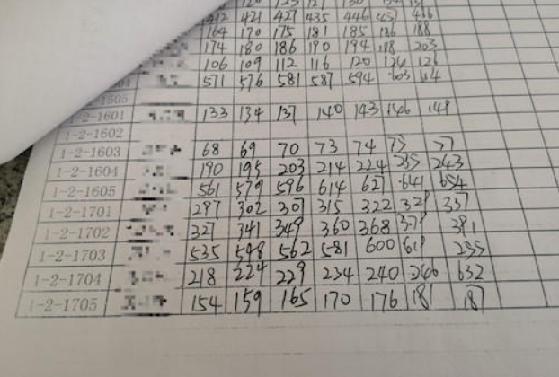 412 421 427 435 446
164 170 175 181 185 186 188
174 180 186 190 194 198 203
106 109 112 116 120 126
571 576 581 587 594 603
1-2-1601 133 134 137 140 143 146 149
1-2-1602
1-2-1603 68 69 70 73 74 75 77
1-2-1604 190 195 203 214 224 235 243
1-2-1605 561 579 596 614 627 641 654
1-2-1701 297 302 307 315 322 329 337
1-2-1702 327 341 349 360 368 379 391
1-2-1703 535 548 562 581 600 619 235
1-2-1704 218 224 229 234 240 246 632
1-2-1705 154 159 165 170 176 181 187